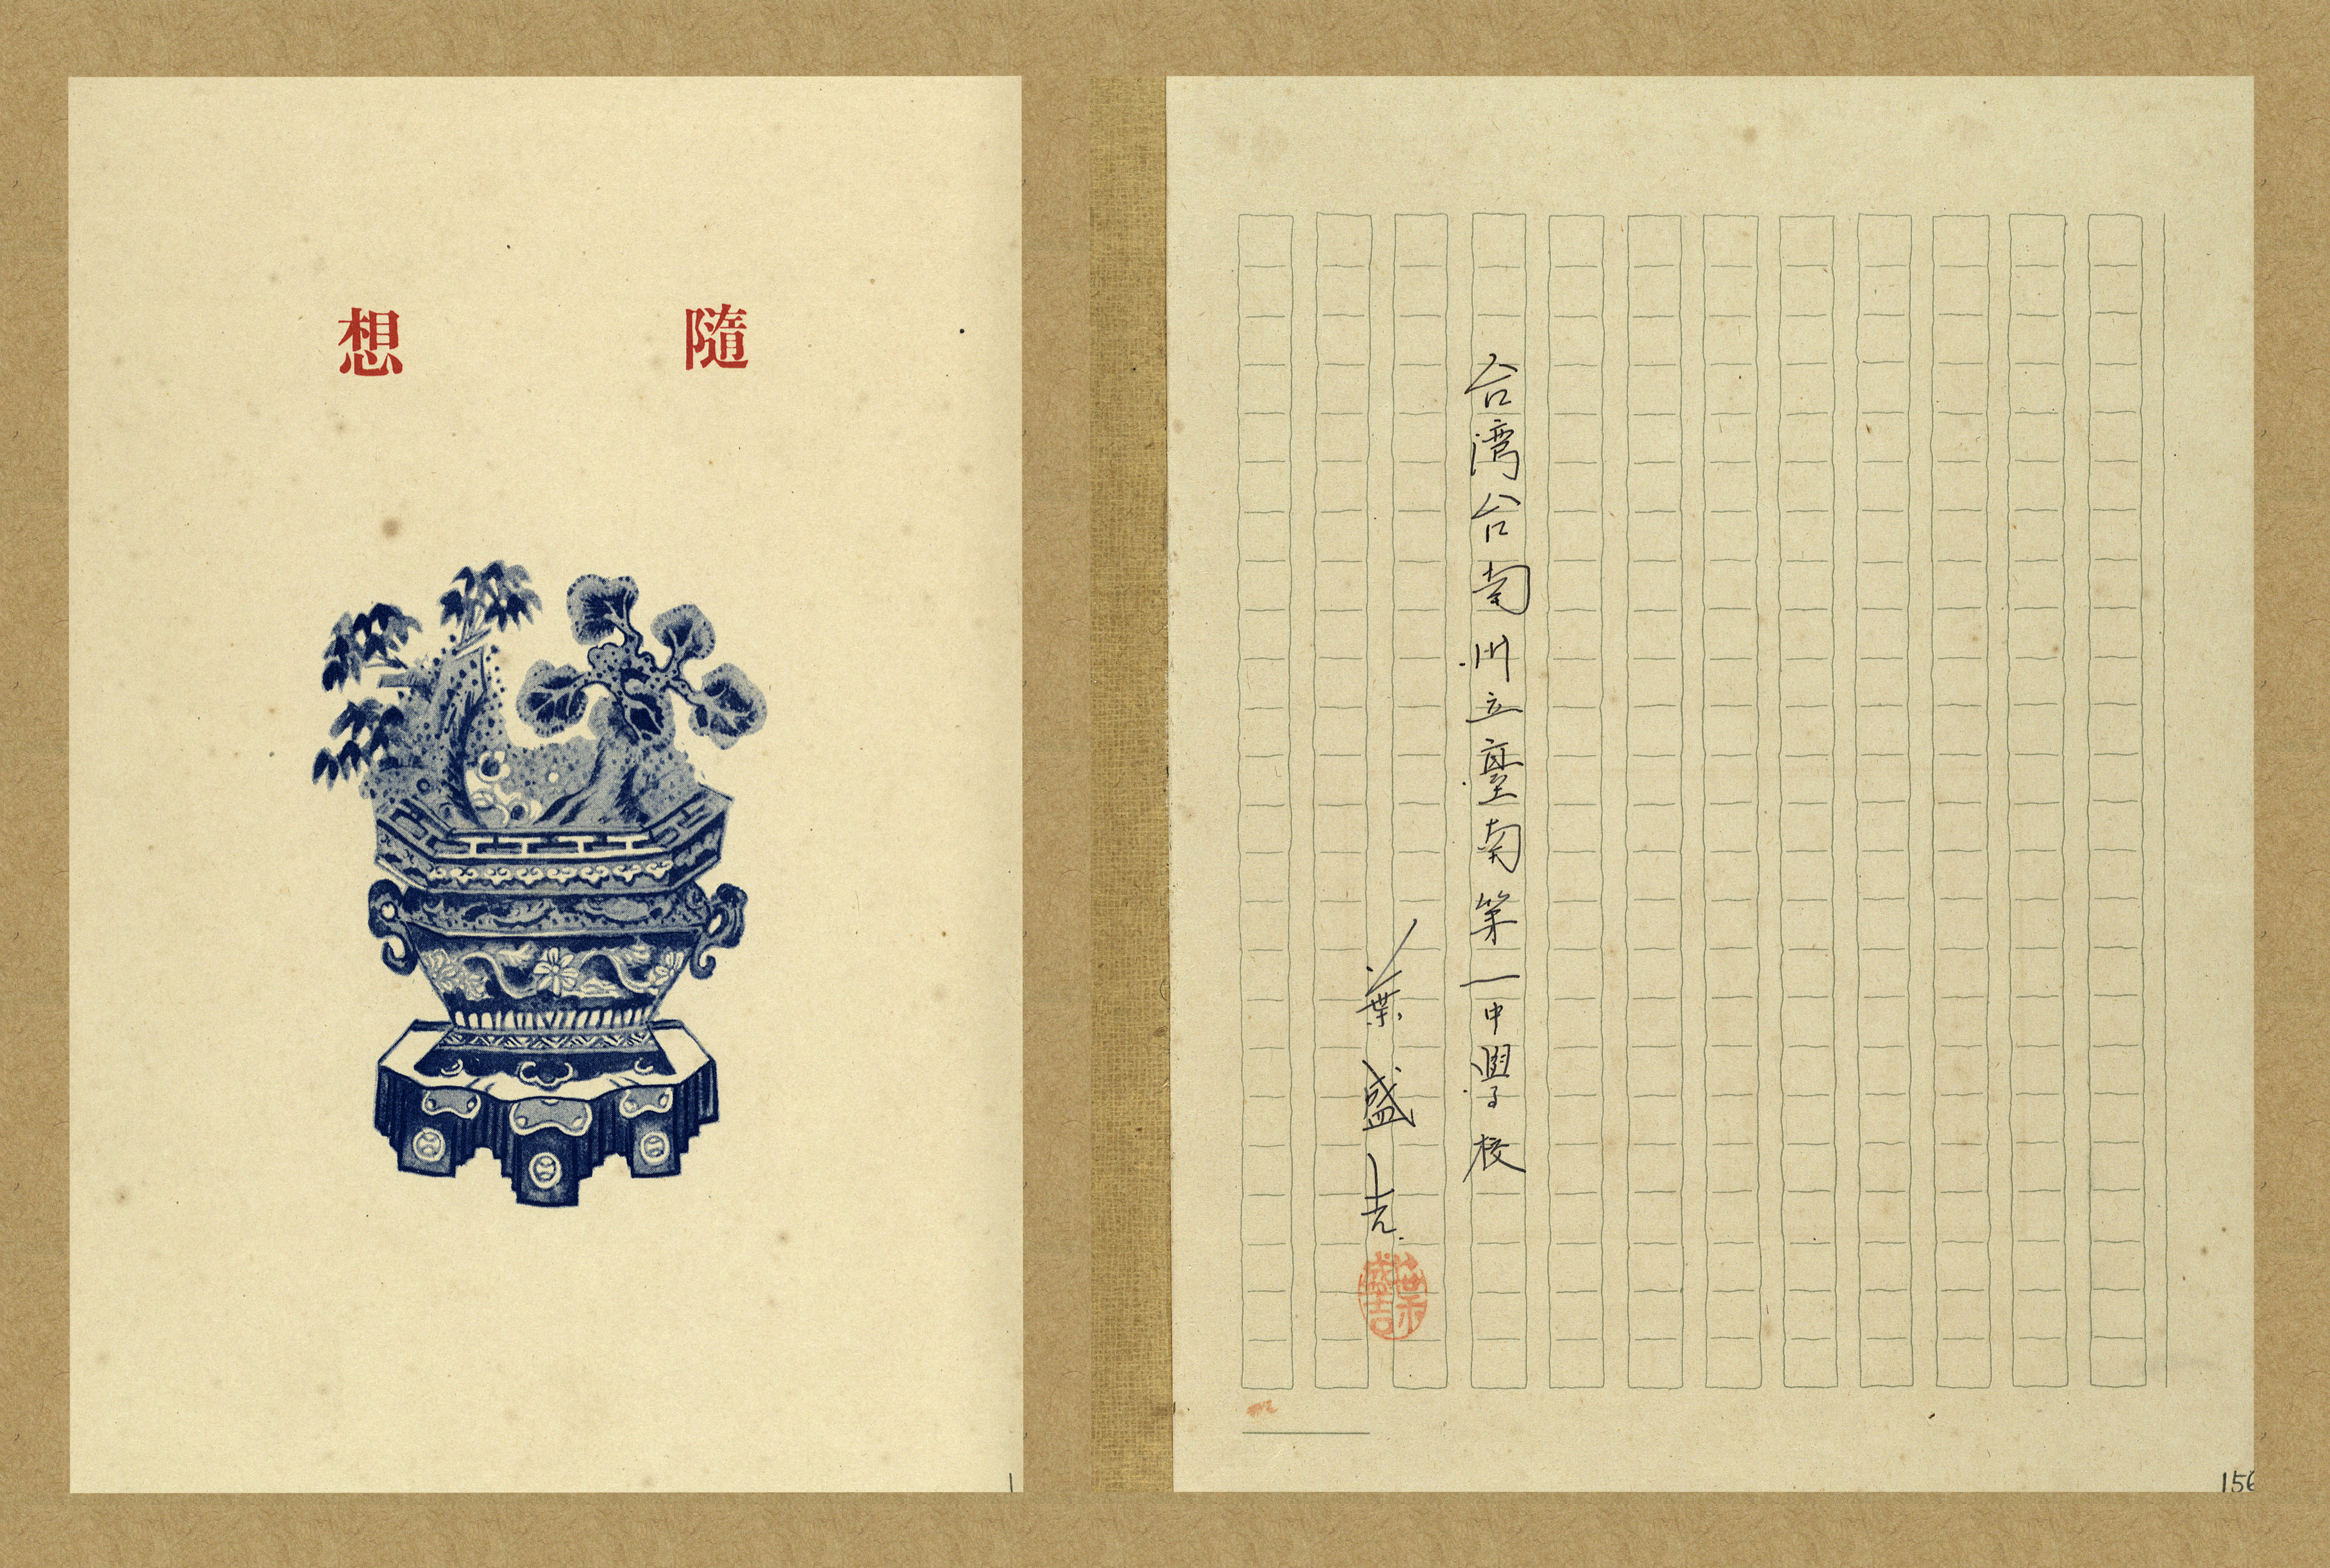 隨想
台湾台南州立臺南第一中學校
葉盛吉
葉盛吉
1
156